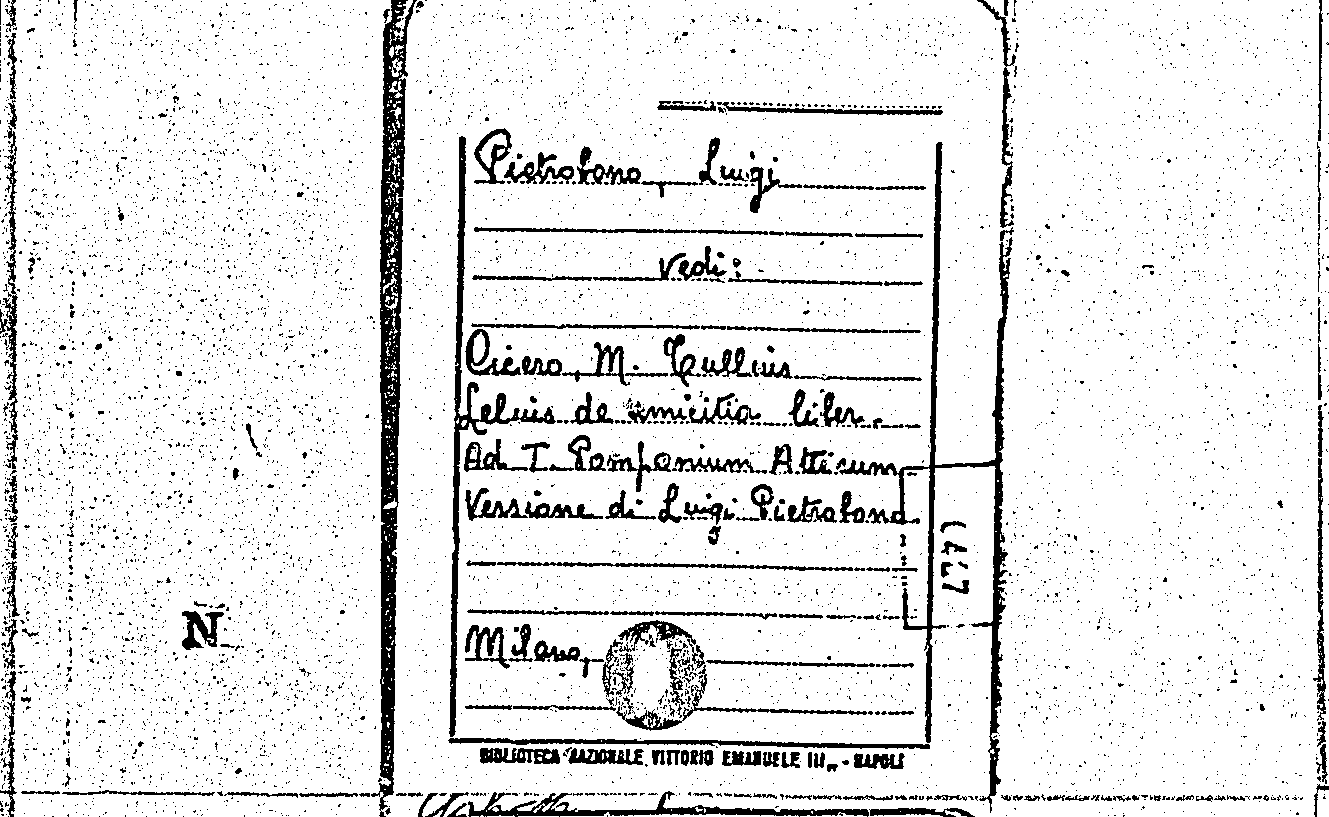 Pietrobono, Luigi
vedi:
Cicero, M. Tullius
Lelius de amicitia liber.
Ad T. Pomponium Atticum.
Versione di Luigi Pietrobono.
Milano,
N
BIBLIOTECA NAZIONALE VITTORIO EMANUELE III„ - NAPOLI